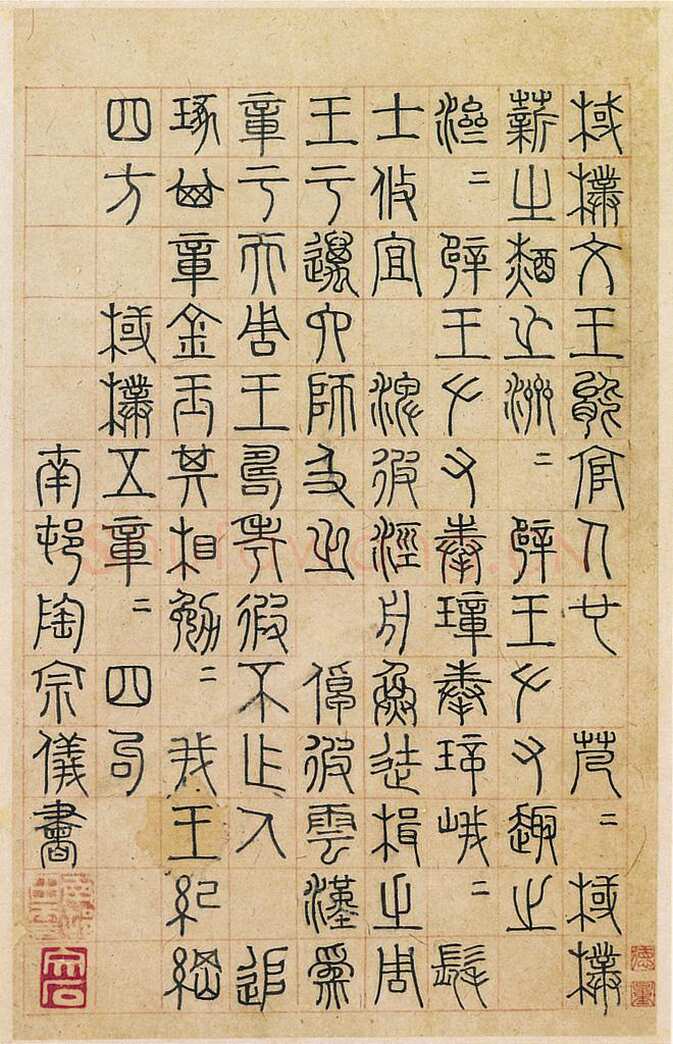 棫樸文王能官人也 芃二棫樸
薪之槱之濟二 辟王左右趣之
濟二 辟王左右奉璋奉璋峨二髦
士攸宜 淠彼涇舟烝徒楫之周
王于邁六師及之 倬彼雲漢為
章于天周王壽考遐不作人 追
琢其章金玉其相勉二我王紀綱
四方 棫樸五章二四句
南邨陶宗儀書